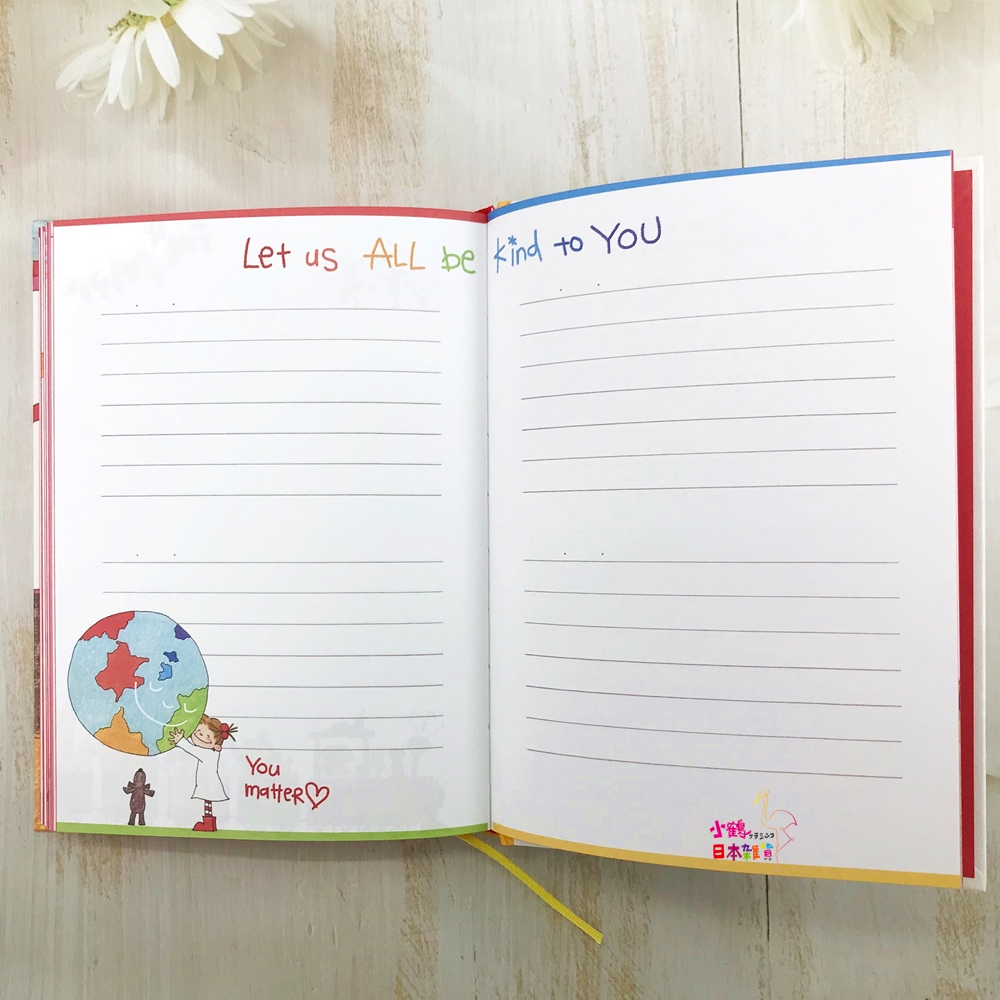 Let us ALL be kind to YOU
You
matter♡
小鶴
日本雑貨